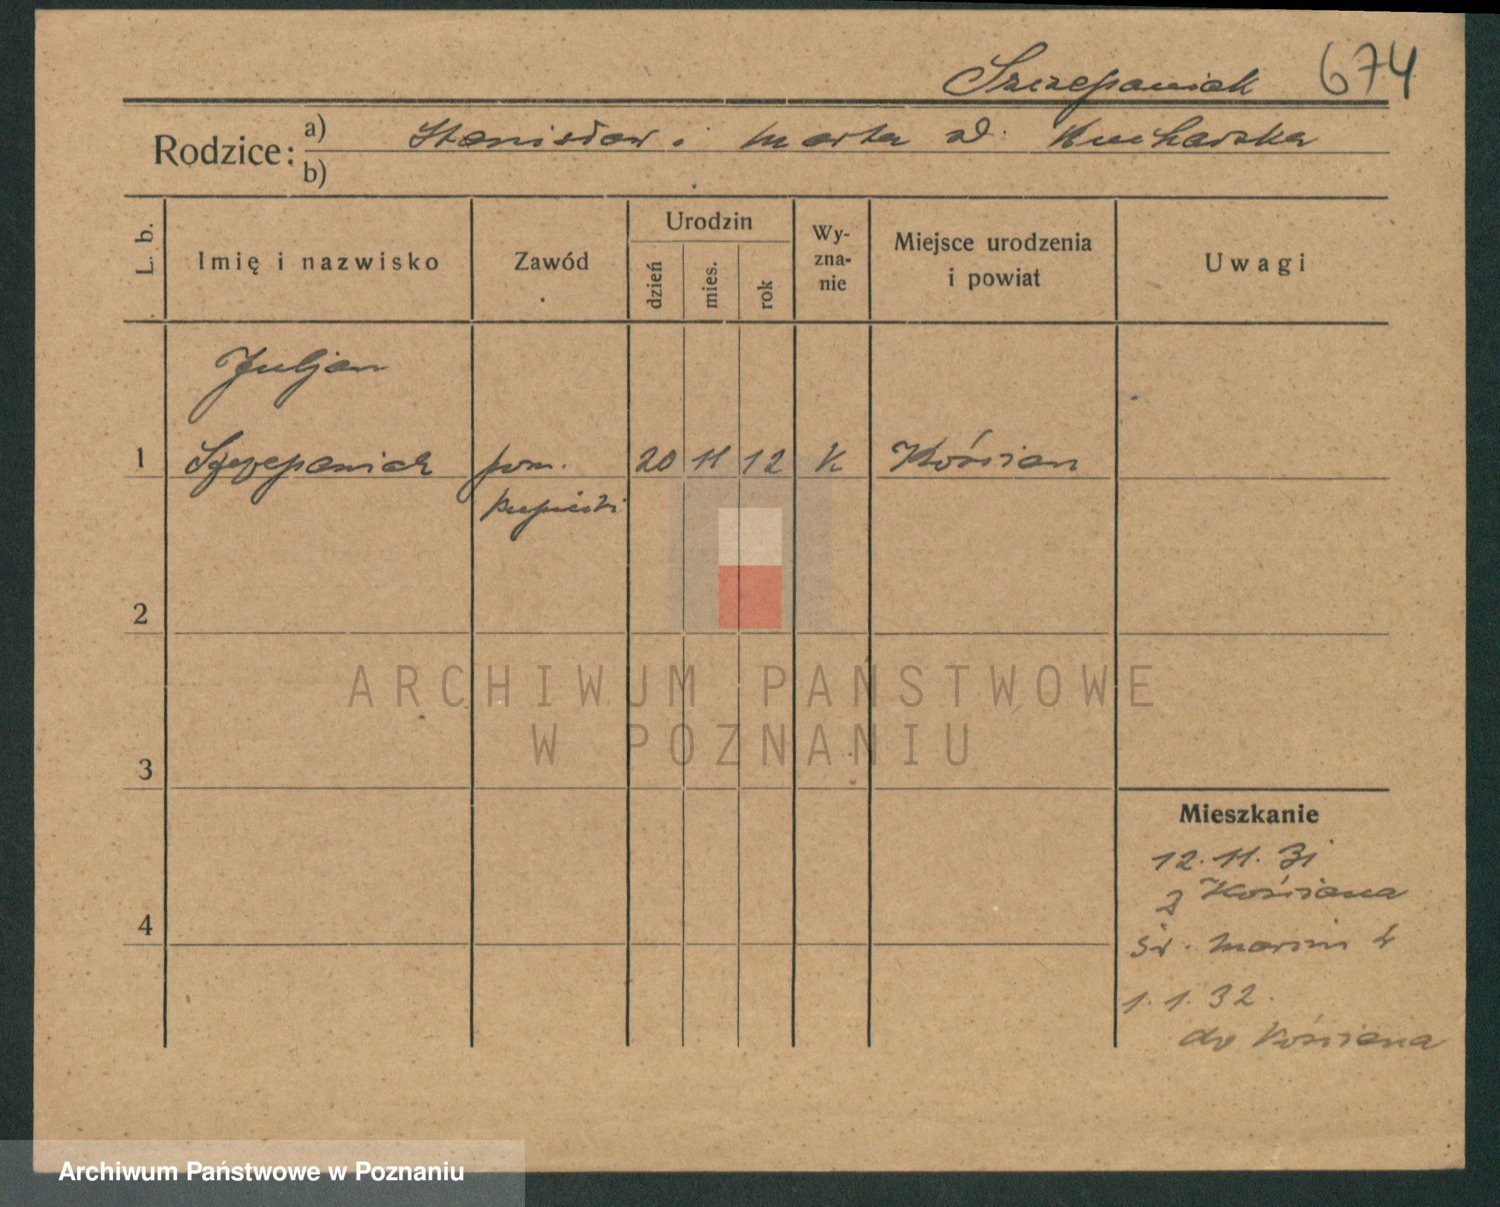 Szczepaniak 674
Rodzice: a) Stanisław i Marta zd. Kucharska
b)
L. b. Imię i nazwisko Zawód Urodzin dzień mies. rok Wy-zna-nie Miejsce urodzenia i powiat Uwagi
Juljan
1 Szczepaniak pom. 20 11 12 k Kościan
kupiecki
2
ARCHIWUM PAŃSTWOWE
W POZNANIU
3
Mieszkanie
12. 11. 31
z Kościana
4
Św. Marcin
1. 1. 32.
do Kościana
Archiwum Państwowe w Poznaniu